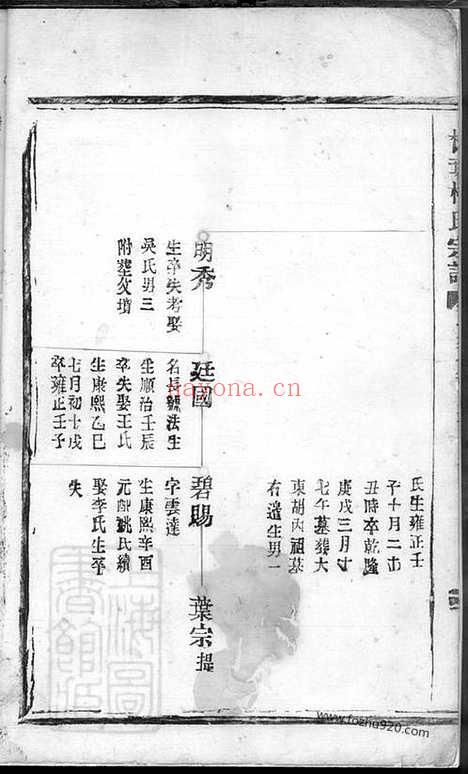 氏生雍正壬
子十月二十
丑時卒乾隆
庚戌三月廿
七午墓葬大
東胡內祖墓
右邊生男一
明秀
生卒失考娶
吳氏男三
附葬父墳
廷國
名長號法生
生順治壬辰
卒失娶王氏
生康熙乙巳
七月初十戌
卒雍正壬子
碧賜
字雲達
生康熙辛酉
元配姚氏續
娶李氏生卒
失
葉宗 提
nayona.cn
www.fozhu920.com